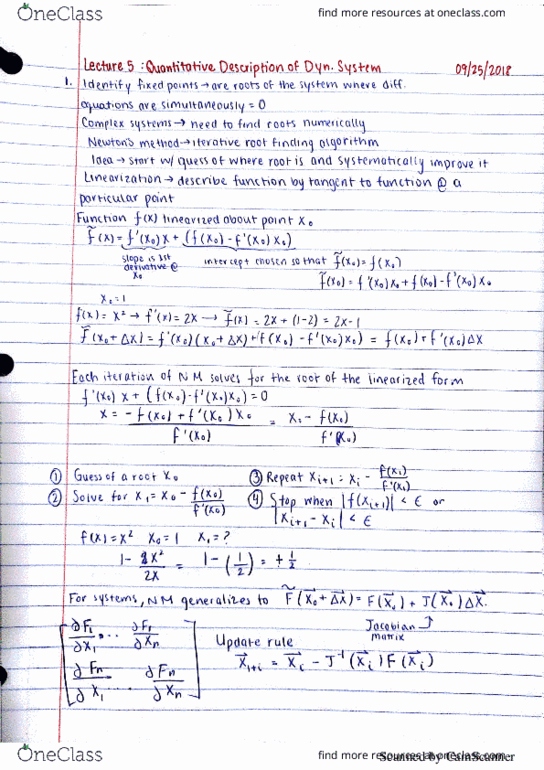 OneClass
find more resources at oneclass.com
Lecture 5 : Quantitative Description of Dyn. System 09/25/2018
1. Identify fixed points → are roots of the system where diff.
equations are simultaneously = 0
Complex systems → need to find roots numerically
Newton's method → iterative root finding algorithm
Idea → start w/ guess of where root is and systematically improve it
Linearization → describe function by tangent to function @ a
particular point
Function f(x) linearized about point X₀
f̃(x) = f'(x₀)x + (f(x₀) - f'(x₀)x₀)
slope is 1st derivative @ x₀
intercept chosen so that f̃(x₀) = f(x₀)
f̃(x₀) = f'(x₀)x₀ + f(x₀) - f'(x₀)x₀
x₀ = 1
f(x) = x² → f'(x) = 2x → f̃(x) = 2x + (1-2) = 2x-1
f̃(x₀ + Δx) = f'(x₀)(x₀ + Δx) + f(x₀) - f'(x₀)x₀) = f(x₀) + f'(x₀)Δx
Each iteration of NM solves for the root of the linearized form
f'(x₀) x + (f(x₀) - f'(x₀)x₀) = 0
x = -f(x₀) + f'(x₀)x₀ / f'(x₀) = x₀ - f(x₀) / f'(x₀)
① Guess of a root x₀
② Solve for x₁ = x₀ - f(x₀) / f'(x₀)
③ Repeat xᵢ₊₁ = xᵢ - f(xᵢ) / f'(xᵢ)
④ Stop when |f(xᵢ₊₁)| < ε or
|xᵢ₊₁ - xᵢ| < ε
f(x) = x² x₀ = 1 x₁ = ?
1 - x² / 2x = 1 - (1/2) = + 1/2
For systems, NM generalizes to F̃(X⃗₀ + Δ⃗x) = F(X⃗₀) + J(X⃗₀)ΔX⃗.
Jacobian matrix
∂F₁/∂x₁ ... ∂F₁/∂xₙ
∂Fₙ/∂x₁ ... ∂Fₙ/∂xₙ
Update rule
X⃗ᵢ₊₁ = X⃗ᵢ - J⁻¹(X⃗ᵢ)F(X⃗ᵢ)
OneClass
find more resources at oneclass.com
Scanned by CamScanner